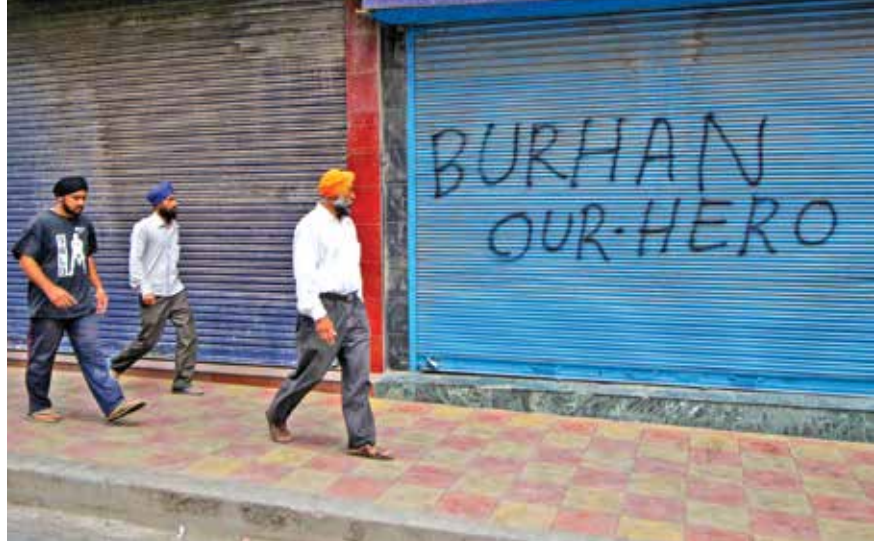 BURHAN
OUR-HERO